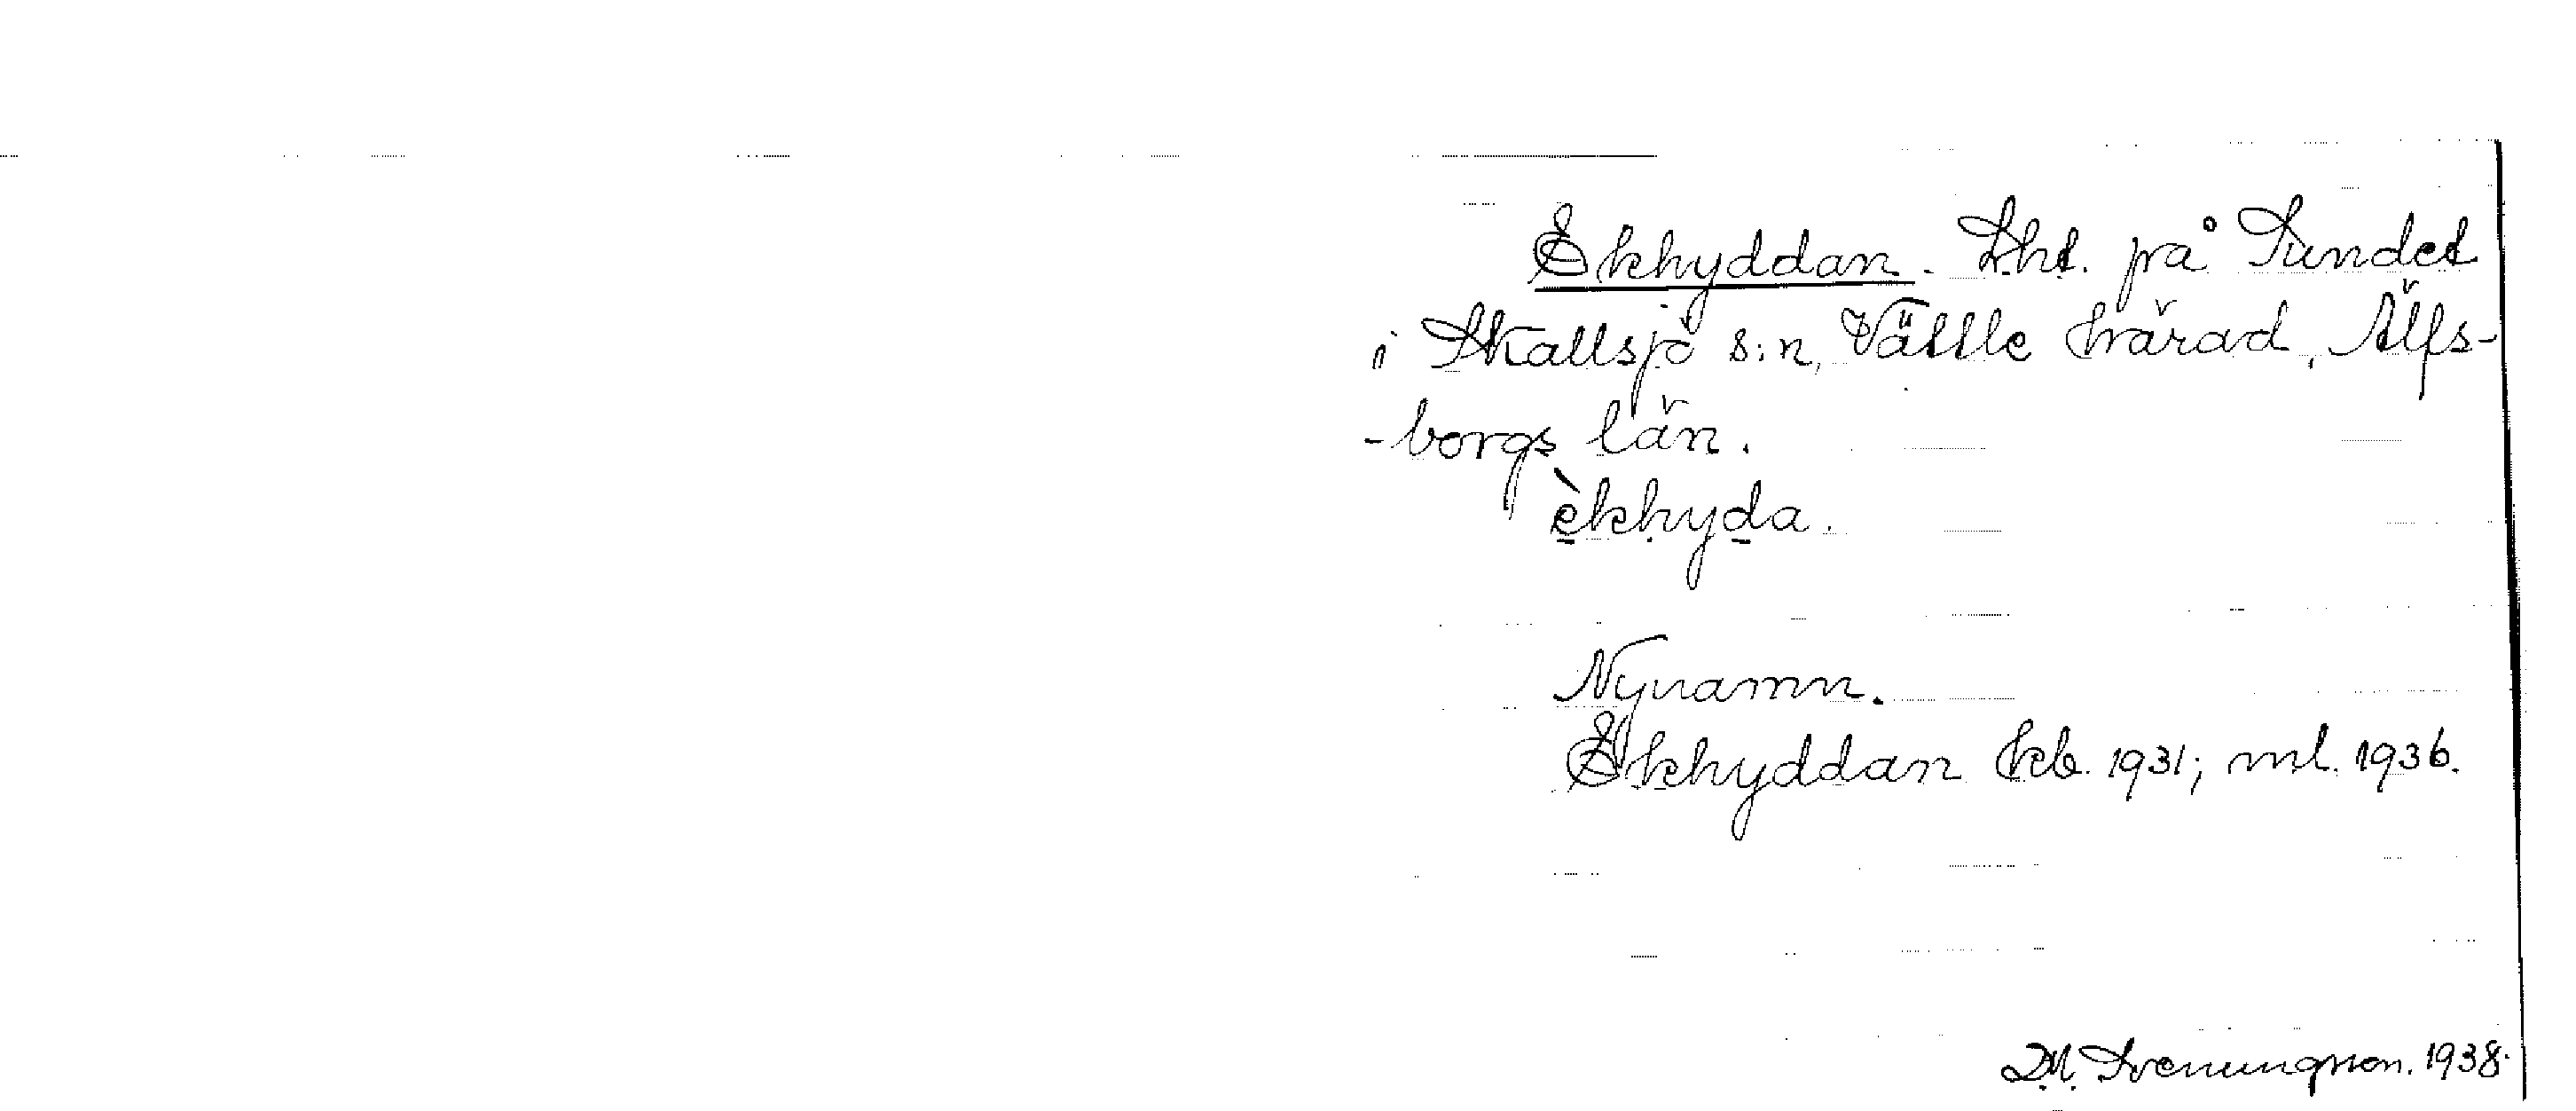 Ekhyddan. Lht. på Sundet
i Skallsjö s:n, Vättle härad, Älfs-
-borgs län.
èkhyda.
Nynamn.
Ekhyddan kb. 1931; ml. 1936.
D.M. Svenungsson. 1938.